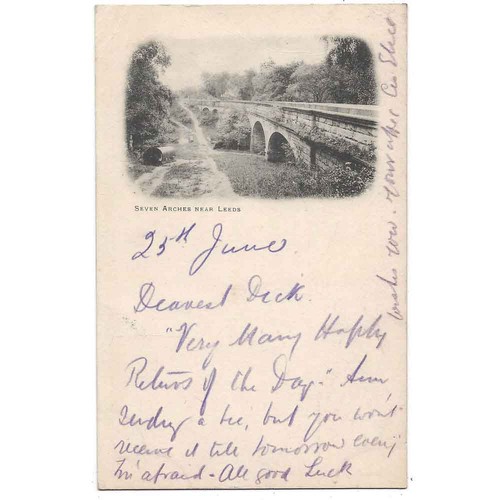 SEVEN ARCHES NEAR LEEDS
25th June.
Dearest Dick.
"Very Many Happy
Returns of the Day." Am
sending a tie, but you won't
receive it till tomorrow eveng
I'm afraid - All good Luck
wishes